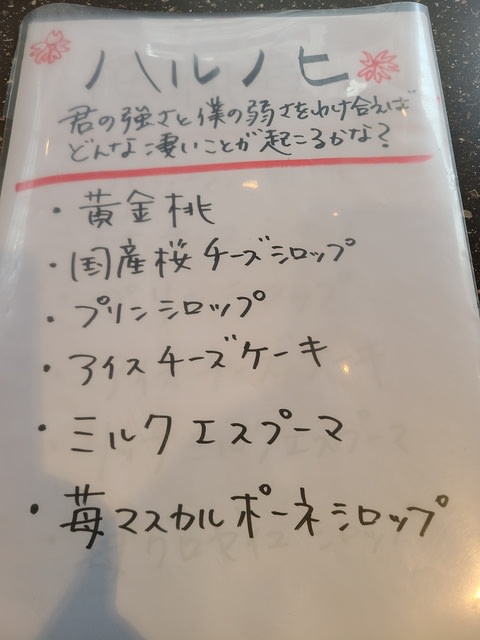 ハルノヒ
君の強さと僕の弱さをわけ合えば
どんな凄いことが起こるかな？
・黄金桃
・国産桜チーズシロップ
・プリンシロップ
・アイスチーズケーキ
・ミルクエスプーマ
・苺マスカルポーネシロップ